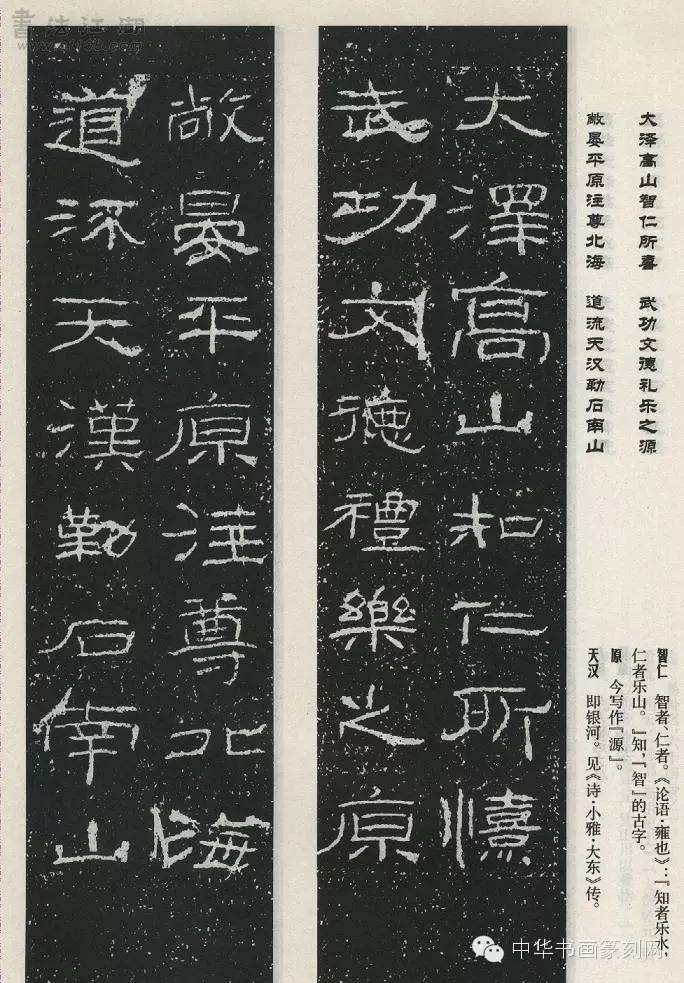 書法江湖
大泽高山智仁所喜 武功文德礼乐之源
敞晏平原注尊北海 道流天汉勒石南山
智仁 智者、仁者。《论语·雍也》:『知者乐水,
仁者乐山。』知,『智』的古字。
原 今写作『源』。
天汉 即银河。见《诗·小雅·大东》传。
大澤高山知仁所憘
武功文德禮樂之原
敞晏平原注尊北海
道流天漢勒石南山
中华书画篆刻网